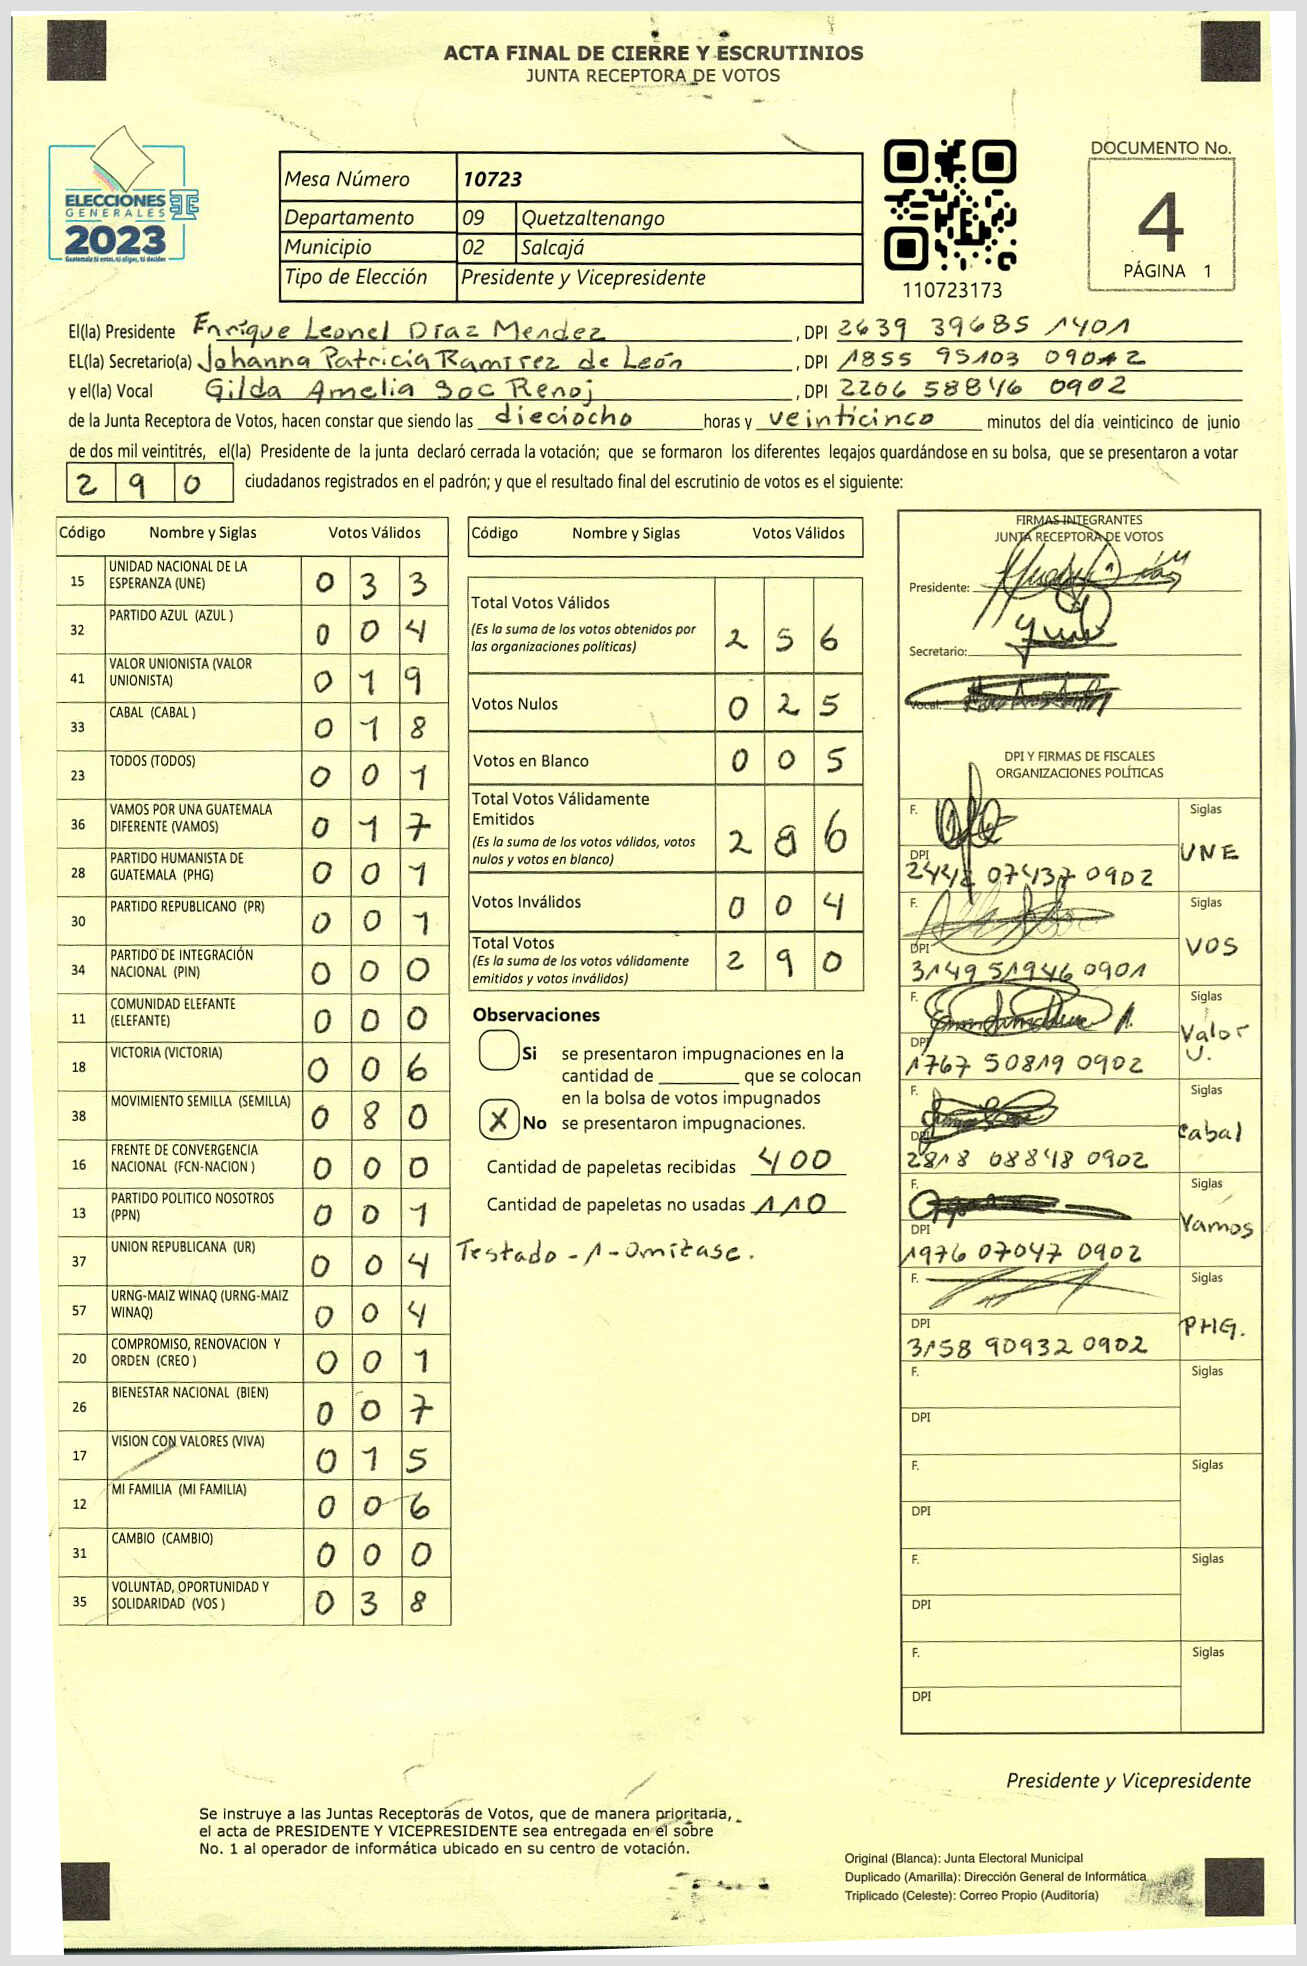 ACTA FINAL DE CIERRE Y ESCRUTINIOS
JUNTA RECEPTORA DE VOTOS
ELECCIONES
GENERALES
2023
Guatemala tú votas, tú eliges, tú decides
Mesa Número 10723
Departamento 09 Quetzaltenango
Municipio 02 Salcajá
Tipo de Elección Presidente y Vicepresidente
110723173
DOCUMENTO No.
4
PÁGINA 1
El(la) Presidente Enrique Leonel Díaz Mendez, DPI 2639 39685 1401
EL(la) Secretario(a) Johanna Patricia Ramirez de León, DPI 1855 95103 0902
y el(la) Vocal Gilda Amelia Soc Renoj, DPI 2206 58846 0902
de la Junta Receptora de Votos, hacen constar que siendo las dieciocho horas y veinticinco minutos del día veinticinco de junio
de dos mil veintitrés, el(la) Presidente de la junta declaró cerrada la votación; que se formaron los diferentes legajos guardándose en su bolsa, que se presentaron a votar
290 ciudadanos registrados en el padrón; y que el resultado final del escrutinio de votos es el siguiente:
Código Nombre y Siglas Votos Válidos
15 UNIDAD NACIONAL DE LA ESPERANZA (UNE) 0 3 3
32 PARTIDO AZUL (AZUL ) 0 0 4
41 VALOR UNIONISTA (VALOR UNIONISTA) 0 1 9
33 CABAL (CABAL ) 0 1 8
23 TODOS (TODOS) 0 0 1
36 VAMOS POR UNA GUATEMALA DIFERENTE (VAMOS) 0 1 7
28 PARTIDO HUMANISTA DE GUATEMALA (PHG) 0 0 1
30 PARTIDO REPUBLICANO (PR) 0 0 1
34 PARTIDO DE INTEGRACIÓN NACIONAL (PIN) 0 0 0
11 COMUNIDAD ELEFANTE (ELEFANTE) 0 0 0
18 VICTORIA (VICTORIA) 0 0 6
38 MOVIMIENTO SEMILLA (SEMILLA) 0 8 0
16 FRENTE DE CONVERGENCIA NACIONAL (FCN-NACION ) 0 0 0
13 PARTIDO POLITICO NOSOTROS (PPN) 0 0 1
37 UNION REPUBLICANA (UR) 0 0 4
57 URNG-MAIZ WINAQ (URNG-MAIZ WINAQ) 0 0 4
20 COMPROMISO, RENOVACION Y ORDEN (CREO ) 0 0 1
26 BIENESTAR NACIONAL (BIEN) 0 0 7
17 VISION CON VALORES (VIVA) 0 1 5
12 MI FAMILIA (MI FAMILIA) 0 0 6
31 CAMBIO (CAMBIO) 0 0 0
35 VOLUNTAD, OPORTUNIDAD Y SOLIDARIDAD (VOS ) 0 3 8
Código Nombre y Siglas Votos Válidos
Total Votos Válidos
(Es la suma de los votos obtenidos por
las organizaciones políticas) 2 5 6
Votos Nulos 0 2 5
Votos en Blanco 0 0 5
Total Votos Válidamente
Emitidos
(Es la suma de los votos válidos, votos
nulos y votos en blanco) 2 8 6
Votos Inválidos 0 0 4
Total Votos
(Es la suma de los votos válidamente
emitidos y votos inválidos) 2 9 0
Observaciones
Si se presentaron impugnaciones en la
cantidad de ________ que se colocan
en la bolsa de votos impugnados
X No se presentaron impugnaciones.
Cantidad de papeletas recibidas 400
Cantidad de papeletas no usadas 110
Testado -1- Omitase.
FIRMAS INTEGRANTES
JUNTA RECEPTORA DE VOTOS
Presidente:
Secretario:
Vocal:
DPI Y FIRMAS DE FISCALES
ORGANIZACIONES POLÍTICAS
F. Siglas
UNE
DPI
2442 07437 0902
F. Siglas
VOS
DPI
3149 51946 0901
F. Siglas
Valor U.
DPI
1767 50819 0902
F. Siglas
Cabal
DPI
2818 08848 0902
F. Siglas
Vamos
DPI
1976 07047 0902
F. Siglas
PHG.
DPI
3158 90932 0902
F. Siglas
DPI
F. Siglas
DPI
F. Siglas
DPI
F. Siglas
DPI
Presidente y Vicepresidente
Se instruye a las Juntas Receptoras de Votos, que de manera prioritaria,
el acta de PRESIDENTE Y VICEPRESIDENTE sea entregada en el sobre
No. 1 al operador de informática ubicado en su centro de votación.
Original (Blanca): Junta Electoral Municipal
Duplicado (Amarilla): Dirección General de Informática
Triplicado (Celeste): Correo Propio (Auditoría)